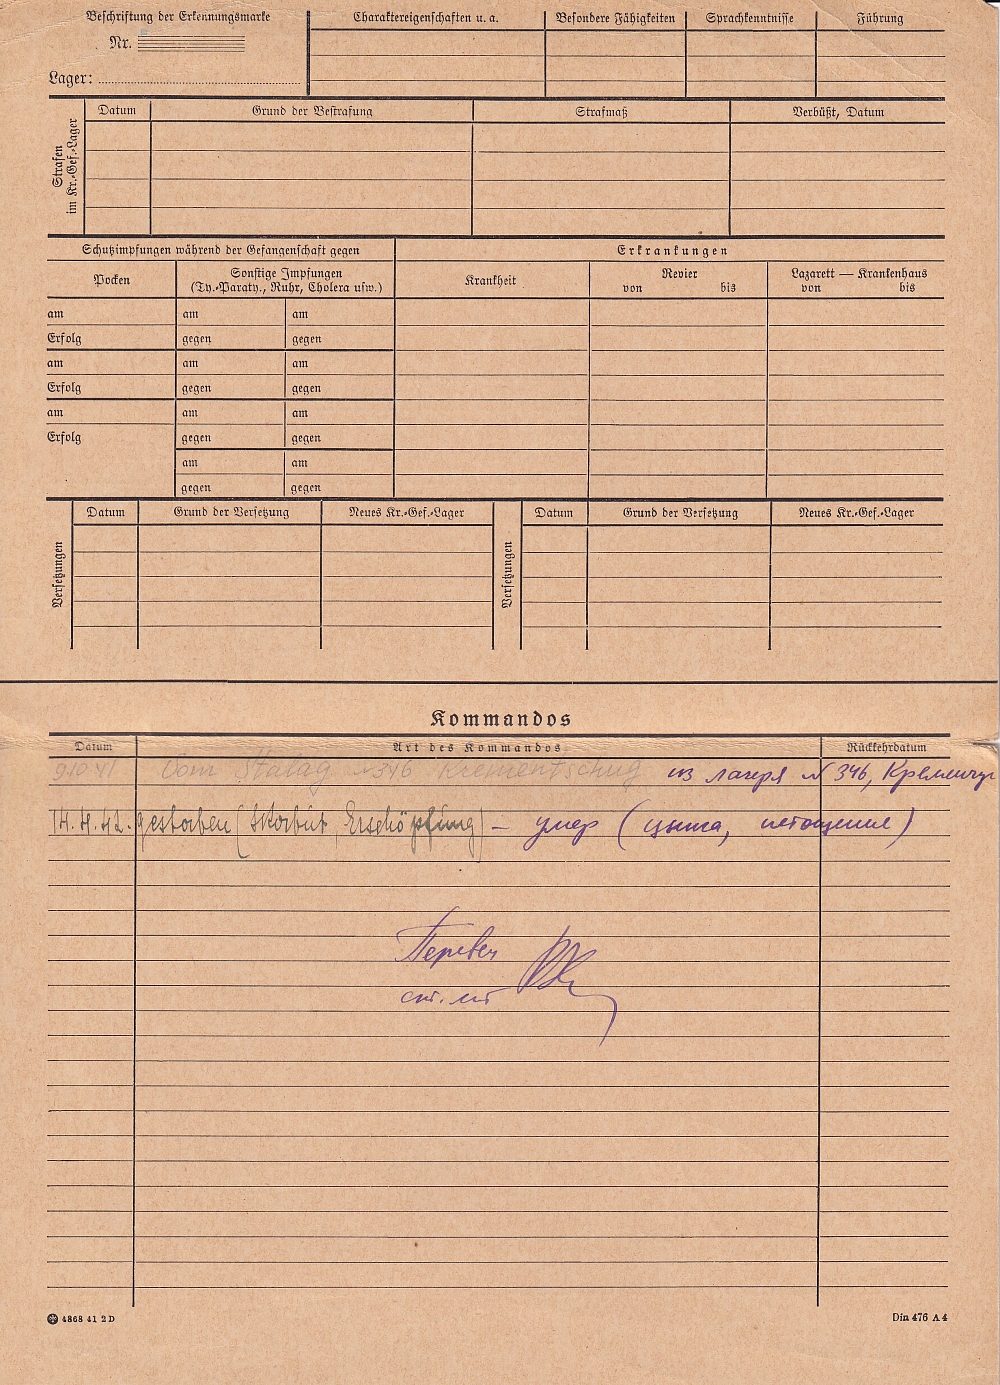 Beschriftung der Erkennungsmarke
Nr.
Lager:
Charaktereigenschaften u. a.
Besondere Fähigkeiten
Sprachkenntnisse
Führung
Strafen
im Kr.-Gef.-Lager
Datum
Grund der Bestrafung
Strafmaß
Verbüßt, Datum
Schutzimpfungen während der Gefangenschaft gegen
Erkrankungen
Pocken
Sonstige Impfungen
(Ty.-Paraty., Ruhr, Cholera usw.)
Krankheit
Revier
von bis
Lazarett — Krankenhaus
von bis
am am am
Erfolg gegen gegen
am am am
Erfolg gegen gegen
am am am
Erfolg gegen gegen
am am
gegen gegen
Versetzungen
Datum Grund der Versetzung Neues Kr.-Gef.-Lager
Versetzungen
Datum Grund der Versetzung Neues Kr.-Gef.-Lager
Kommandos
Datum Art des Kommandos Rückkehrdatum
9.10.41 Vom Stalag №346 Krementschug из лагеря № 346, Кременчуг
14.4.42. gestorben (Skorbut, Erschöpfung) – умер (цынга, истощение)
Перевел
ст. лт
4868 41 2 D
Din 476 A 4